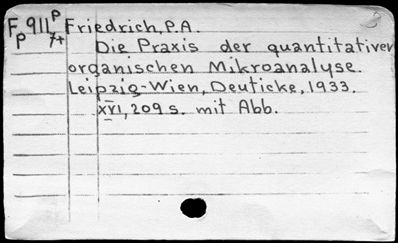 F 911 P Friedrich, P.A.
p 7+
Die Praxis der quantitativen
organischen Mikroanalyse.
Leipzig-Wien, Deuticke, 1933.
XVI, 209 s. mit Abb.